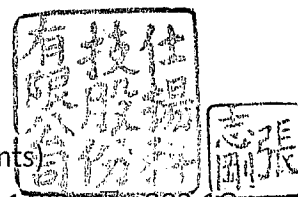 仕科
技股份
有限公司
張
志剛
nts)